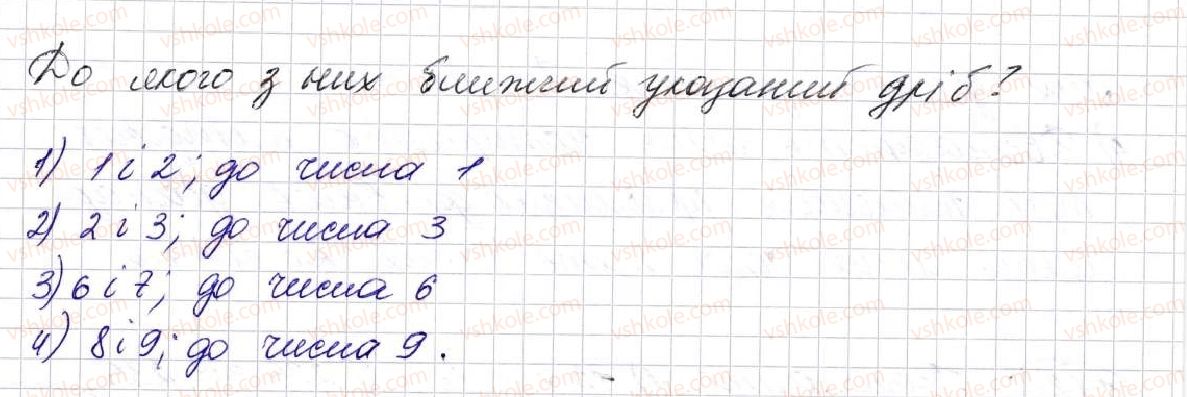 До якого з них ближчий указаний дріб?
1) 1 і 2; до числа 1
2) 2 і 3; до числа 3
3) 6 і 7; до числа 6
4) 8 і 9; до числа 9.